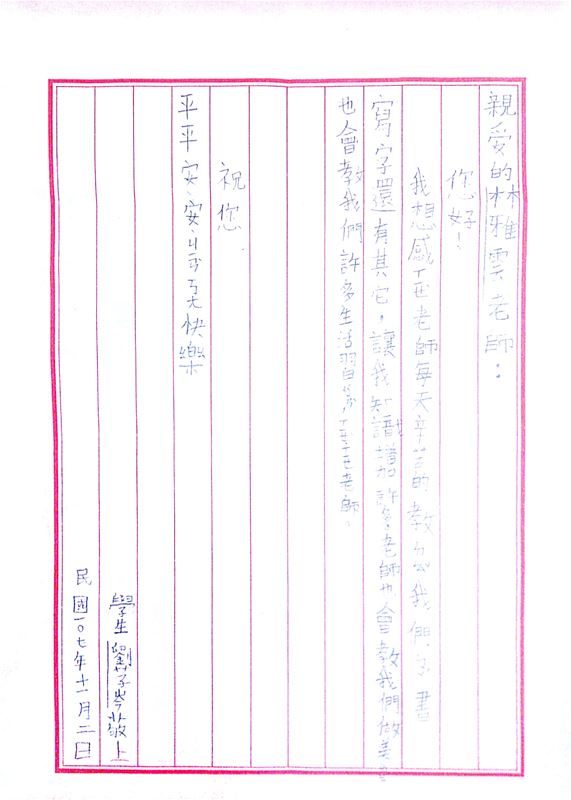 親愛的林雅雲老師：
您好！
我想感ㄒㄧㄝ老師每天辛苦的教ㄉㄠ我們書
寫字還有其它，讓我知識增加許多老師也會教我們做美
也會教我們許多生活習ㄍㄨㄢ老師。
祝您
平平安安ㄐㄧㄢ ㄎㄤ快樂
學生劉芓岑敬上
民國一0七年十一月二日